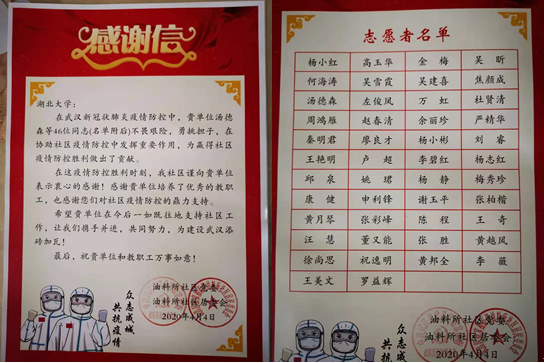 感谢信
湖北大学：
在武汉新冠状肺炎疫情防控中，贵单位汤德
森等46位同志(名单附后)不畏艰险，勇挑担子，在
协助社区疫情防控中发挥重要作用，为赢得社区
疫情防控胜利做出了贡献。
在这疫情防控胜利时刻，我社区谨向贵单位
表示衷心的感谢！感谢贵单位培养了优秀的教职
工，也感谢您们对社区疫情防控的鼎力支持。
希望贵单位在今后一如既往地支持社区工
作，让我们携手并进，共同努力，为建设武汉添
砖加瓦！
最后，祝贵单位和教职工万事如意！
油料所社区党委
油料所社区居委会
2020年4月4日
众志成城
共抗疫情
志愿者名单
杨小红 高玉华 金梅 吴昕
何海涛 吴雪霞 吴建喜 焦颜成
汤德森 左俊凤 万虹 杜贤清
周鸿雁 赵春清 余丽珍 严精华
秦明君 廖良才 杨小彬 刘睿
王艳明 卢超 李碧红 杨志红
邱泉 姚珺 杨静 梅秀珍
康健 申利锋 谢玉平 张柏榴
黄月琴 张彩峰 陈程 王奇
汪慧 董又能 张胜 黄越风
徐尚思 祝逸明 黄邦全 李薇
王美文 罗益辉
油料所社区党委
油料所社区居委会
2020年4月4日
众志成城
共抗疫情